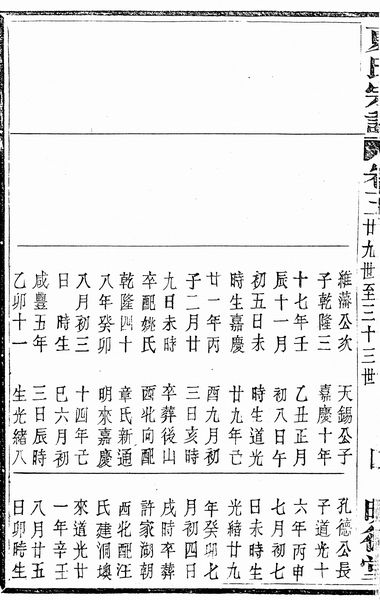 夏氏宗譜
卷三
廿九世至三十三世
維藩公次
子乾隆三
十七年壬
辰十一月
初五日未
時生嘉慶
廿一年丙
子二月廿
九日未時
卒配姚氏
乾隆四十
八年癸卯
八月初三
日 時生
咸豐五年
乙卯十一
天錫公子
嘉慶十年
乙丑正月
初八日午
時生道光
廿九年己
酉九月初
三日亥時
卒葬後山
酉牝向配
章氏新通
明來嘉慶
十四年己
巳六月初
三日辰時
生光緒八
孔德公長
子道光十
六年丙申
七月初七
日未時生
光緒廿九
年癸卯七
月初四日
戌時卒葬
許家湖朝
西牝配汪
氏建洞墺
來道光廿
一年辛壬
八月廿五
日卯時生